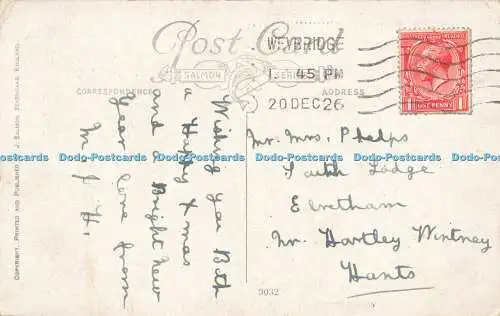 Post Card
SALMON SERIES
CORRESPONDENCE
ADDRESS
WEYBRIDGE
45 PM
20 DEC 26
ONE PENNY
Wishing you Both
a Happy Xmas
and a Bright New
Year love from
M J H.
Mr. Mrs. Phelps
Lodge
Elvetham
Nr. Hartley Wintney
Hants
9032
COPYRIGHT, PRINTED AND PUBLISHED J. SALMON, SEVENOAKS, ENGLAND.
Dodo-Postcards Dodo-Postcards Dodo-Postcards Dodo-Postcards Dodo-Postcards